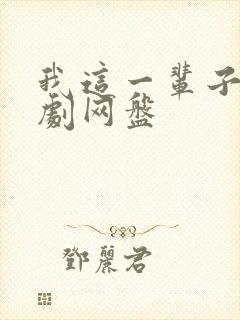 我這一輩子
劇网盤
鄧麗君